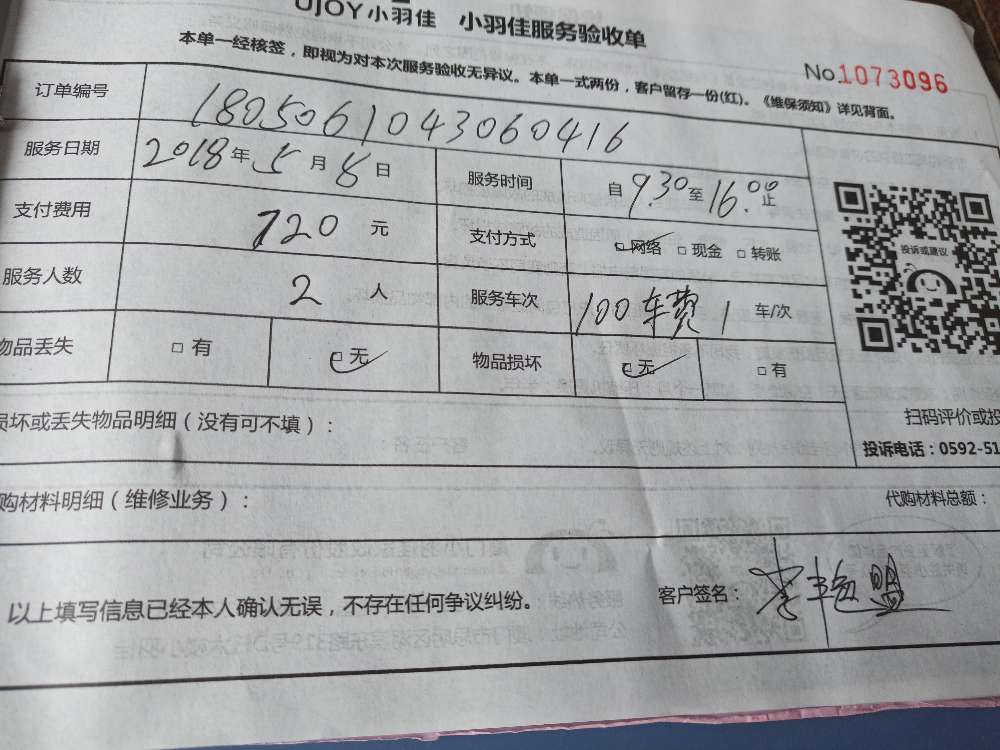 UJOY小羽佳 小羽佳服务验收单
本单一经核签，即视为对本次服务验收无异议。本单一式两份，客户留存一份(红)。《维保须知》详见背面。
No.1073096
订单编号 1805061043060416
服务日期 2018年5月8日 服务时间 自9:30至16:00止
支付费用 720元 支付方式 网络 现金 转账
服务人数 2人 服务车次 100车费1车/次
物品丢失 有 无 物品损坏 无 有
投诉或建议
扫码评价或投
投诉电话：0592-51
损坏或丢失物品明细（没有可不填）：
购材料明细（维修业务）： 代购材料总额：
以上填写信息已经本人确认无误，不存在任何争议纠纷。 客户签名：